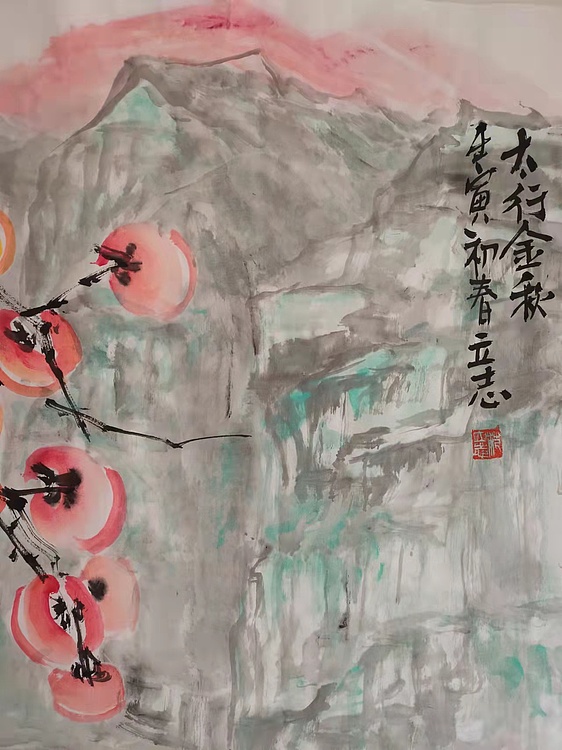 太行金秋
壬寅初春立志